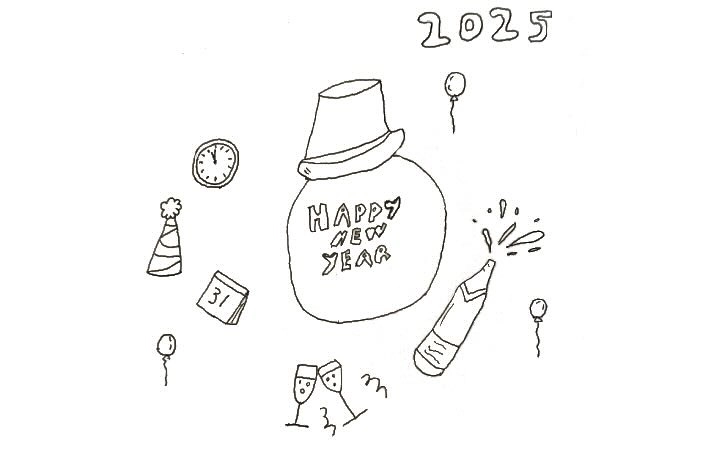 2025
HAPPY
NEW
YEAR
31